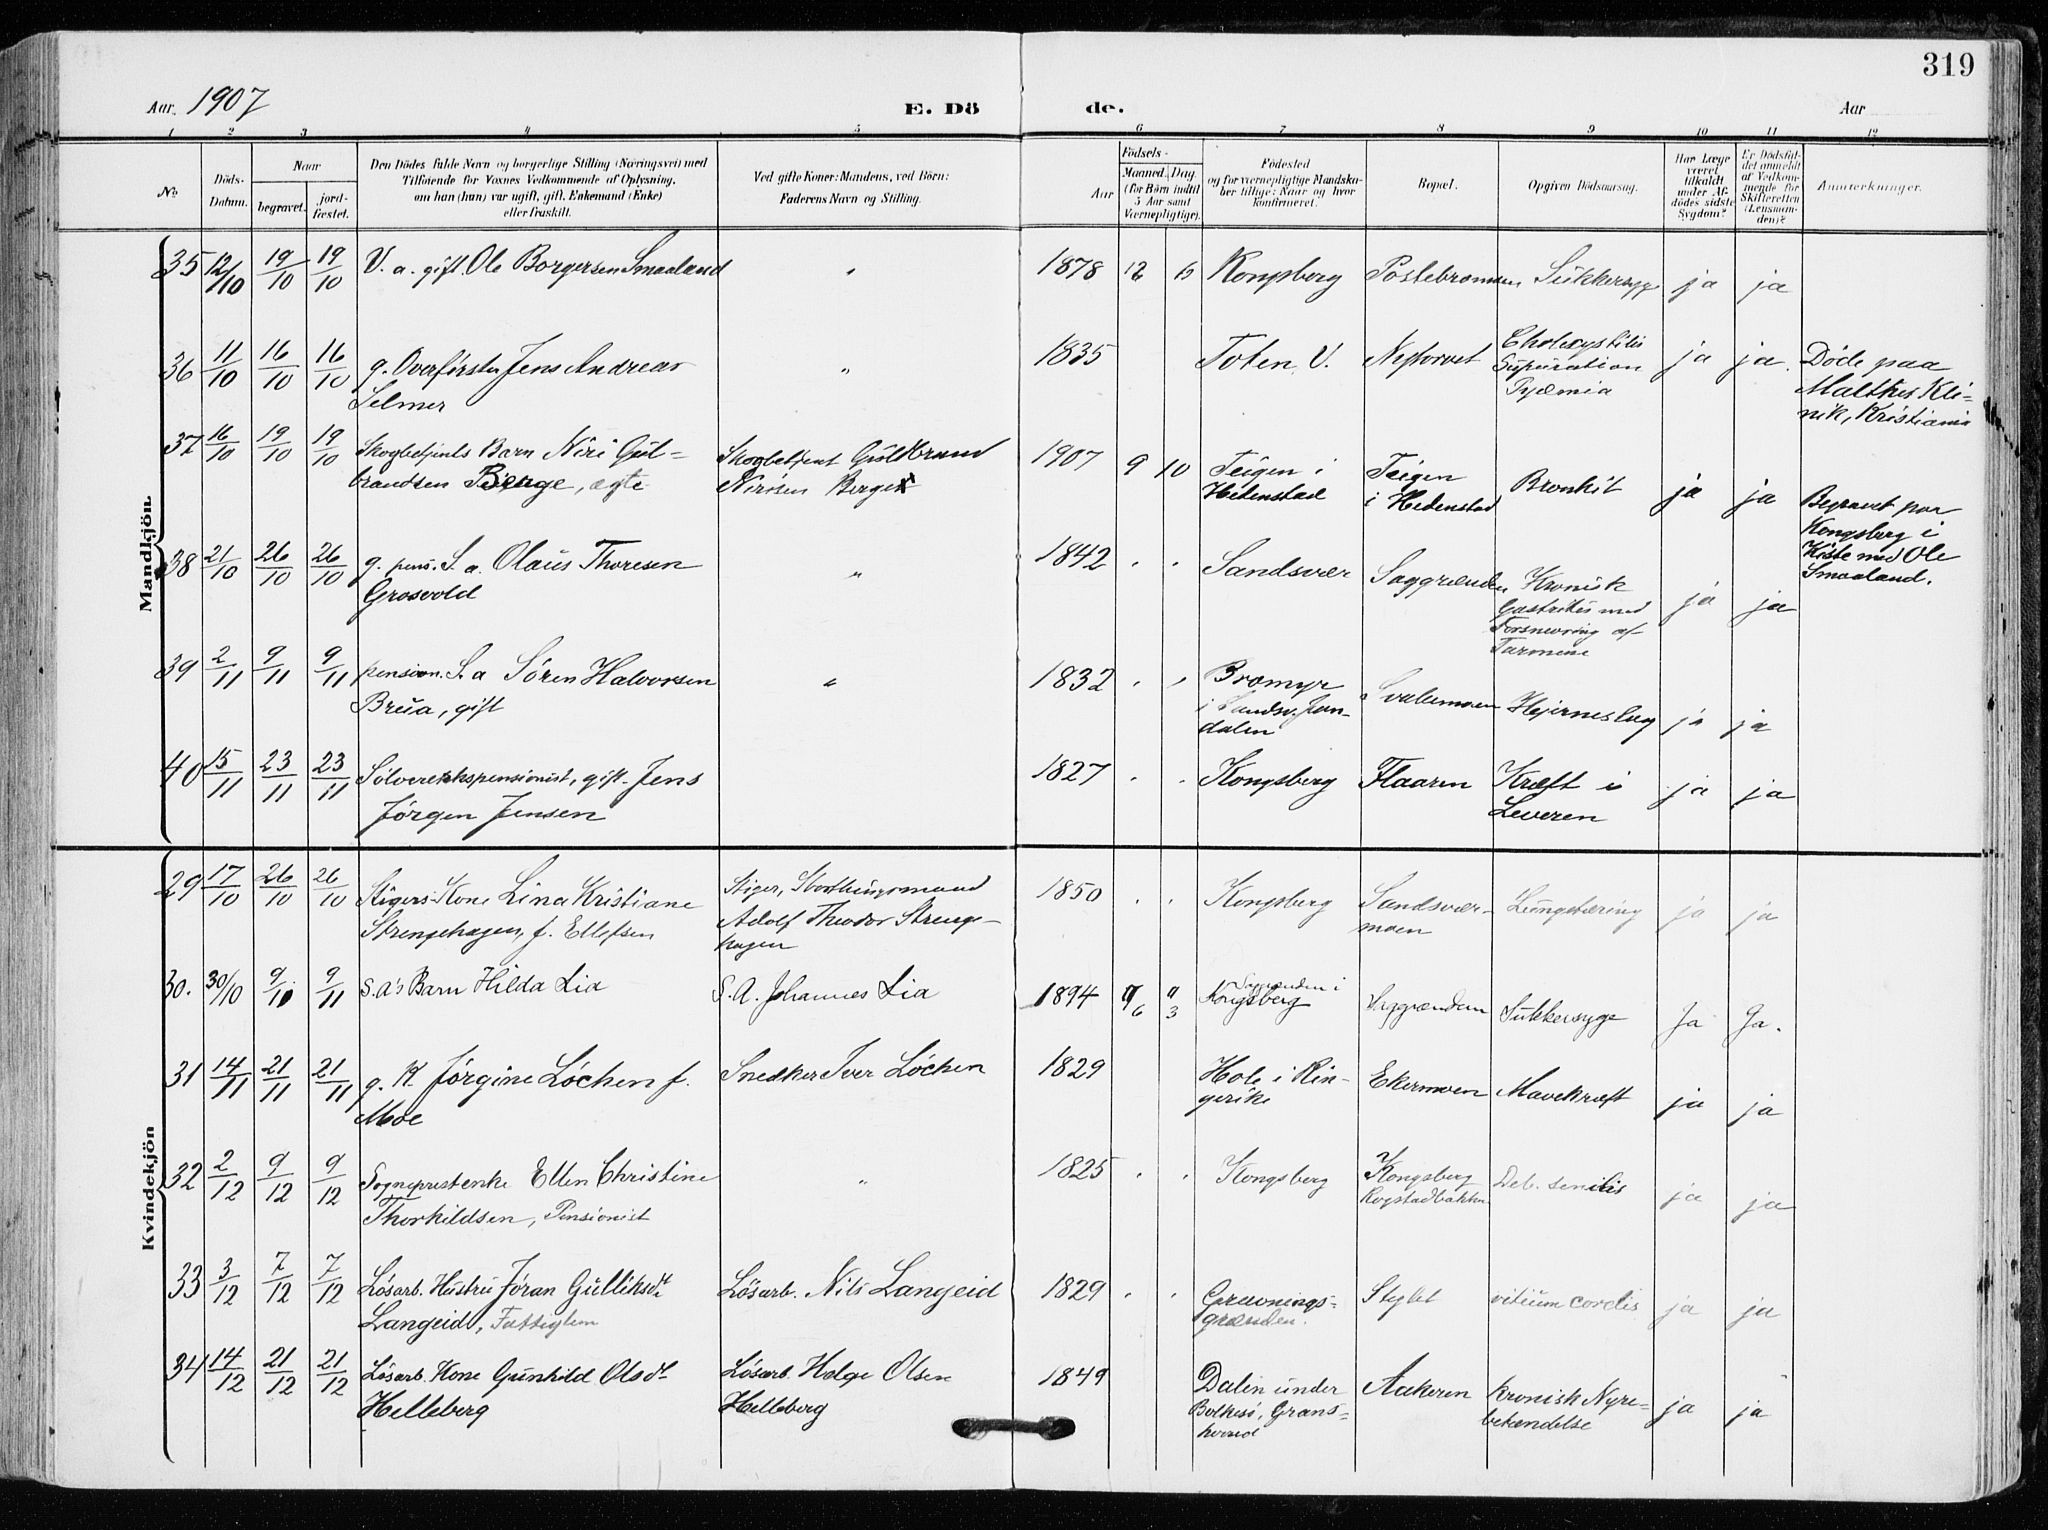 319
Aar 1907 E. Dö de. Aar
1 2 3 4 5 6 7 8 9 10 11 12
No.
Döds-
Datum.
Naar
begravet.
jord-
fæstet.
Den Dödes fulde Navn og borgerlige Stilling (Næringsvei) med
Tilföiende for Voxnes Vedkommende af Oplysning,
om han (hun) var ugift, gift, Enkemand (Enke)
eller fraskilt.
Ved gifte Koner: Mandens, ved Börn:
Faderens Navn og Stilling.
Aar
Födsels-
Maaned. Dag.
(for Börn indtil
5 Aar samt
Værnepligtige).
Födested
og for værnepligtige Mandska-
ber tillige: Naar og hvor
konfirmeret.
Bopæl.
Opgiven Dödsaarsag.
Har Læge
været
tilkaldt
under Af-
dödes sidste
Sygdom?
Er Dödsfal-
det anmeldt
af Vedkom-
mende for
Skifteretten
(Lensman-
den)?
Anmærkninger.
Mandkjön
35 12/10 19/10 19/10 V. a. gift Ole Borgersen Smaaland " 1878 12 Kongsberg Sukkersyge ja ja
36 11/10 16/10 16/10 g. Overførster Jens Andreas
Selmer
" 1835 Toten V. Nytorvet
Supuration
Pyæmia
ja ja
Døde paa
Malthes Kli-
nik, Kristiania
37 16/10 19/10 19/10 Skogbetjents Barn Niri Gul-
brandsen Berge, ægte
Skogbetjent Guldbrand
Nirisen Berge
1907 9 10 Teigen i
Hedenstad
Teigen
i Hedenstad
Bronkit ja ja
Begravet paa
Kongsberg i
Kiste med Ole
Smaaland.
38 21/10 26/10 26/10 g. pens. S. a. Olaus Thoresen
Grosvold
" 1842 Sandsvær Saggrænden Kronisk
Gastritis med
Forsnevring af
Tarmene
ja ja
39 2/11 9/11 9/11 pension. S. a Søren Halvorsen
Brua, gift
" 1832 Bromyr
i Sandsv. Jon-
dalen
Svalemoen Hjerneslag ja ja
40 15/11 23/11 23/11 Sølverekspensionist, gift. Jens
Jørgen Jensen
1827 Kongsberg Flaaren Kræft i
Leveren
ja ja
Kvindekjön
29 17/10 26/10 26/10 Stigers Kone Lina Kristiane
Strengehagen, f. Ellefsen
Stiger, Storthingsmand
Adolf Theodor Strenge-
hagen
1850 Kongsberg Sandsvær-
moen
Lungetæring ja ja
30. 30/10 9/10 9/11 S.A's Barn Hilda Lia S.A. Johannes Lia 1894 Saggrænden i
Kongsberg
Saggrænden Sukkersyge Ja Ja.
31 14/11 21/11 21/11 g. K Jørgine Løchen f.
Moe
Snedker Iver Løchen 1829 Hole i Rin-
gerike
Ekermoen Mavekræft ja ja
32 2/12 9/12 9/12 Sogneprestenke Ellen Christine
Thorkildsen, Pensionist
" 1825 Kongsberg Kongsberg
Rogstadbakken
Deb. senilis ja ja
33 3/12 7/12 7/12 Løsarb. Hustru Jøran Gulliksdt
Langeid, Fattiglem
Løsarb. Nils Langeid 1829 Gruvnings-
grænden.
Stglet vitium cordis ja ja
34 14/12 21/12 21/12 Løsarb. Kone Gunhild Olsdt
Helleberg
Løsarb. Holge Olsen
Helleberg
1849 Dalen under
Bolkesø, Grans-
herred
Aakeren kronisk Nyre-
betændelse
ja ja